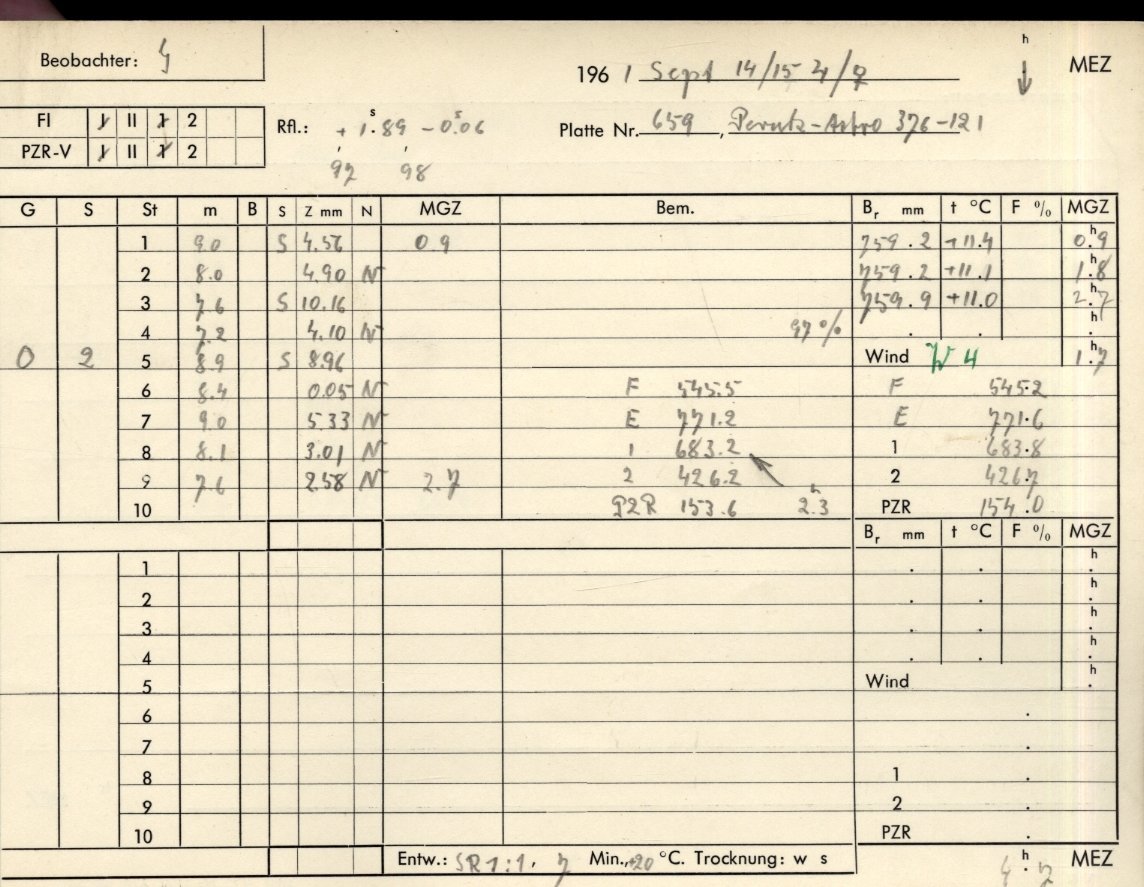 h
Beobachter: 196 1 Sept 14/15 MEZ
FI I II 1 2
Rfl.: + 1.ˢ89 - 0.ˢ06
Platte Nr. 659, Perutz-Astro 376-121
PZR-V I II 1 2
92 98
G S St m B S Z mm N MGZ Bem. Bᵣ mm t °C F % MGZ
1 9.0 S 4.56 0.9 759.2 +11.4 0.ʰ9
2 8.0 4.90 N 759.2 +11.1 1.ʰ8
3 7.6 S 10.16 759.9 +11.0 2.ʰ7
4 7.2 4.10 N 97% . . ʰ.
0 2 5 8.9 S 8.96 Wind W 4 1.ʰ7
6 8.4 0.05 N F 545.5 F 545.2
7 9.0 5.33 N E 771.2 E 771.6
8 8.1 3.01 N 1 683.2 1 683.8
9 7.6 2.58 N 2.7 2 426.2 2 426.7
10 PZR 153.6 2.ʰ3 PZR 154.0
Bᵣ mm t °C F % MGZ
1 . . ʰ.
2 . . ʰ.
3 . . ʰ.
4 . . ʰ.
5 Wind ʰ.
6 .
7 .
8 1 .
9 2 .
10 PZR .
Entw.: SR 1:1, 7 Min., +20 °C. Trocknung: w s 4.ʰ7 MEZ